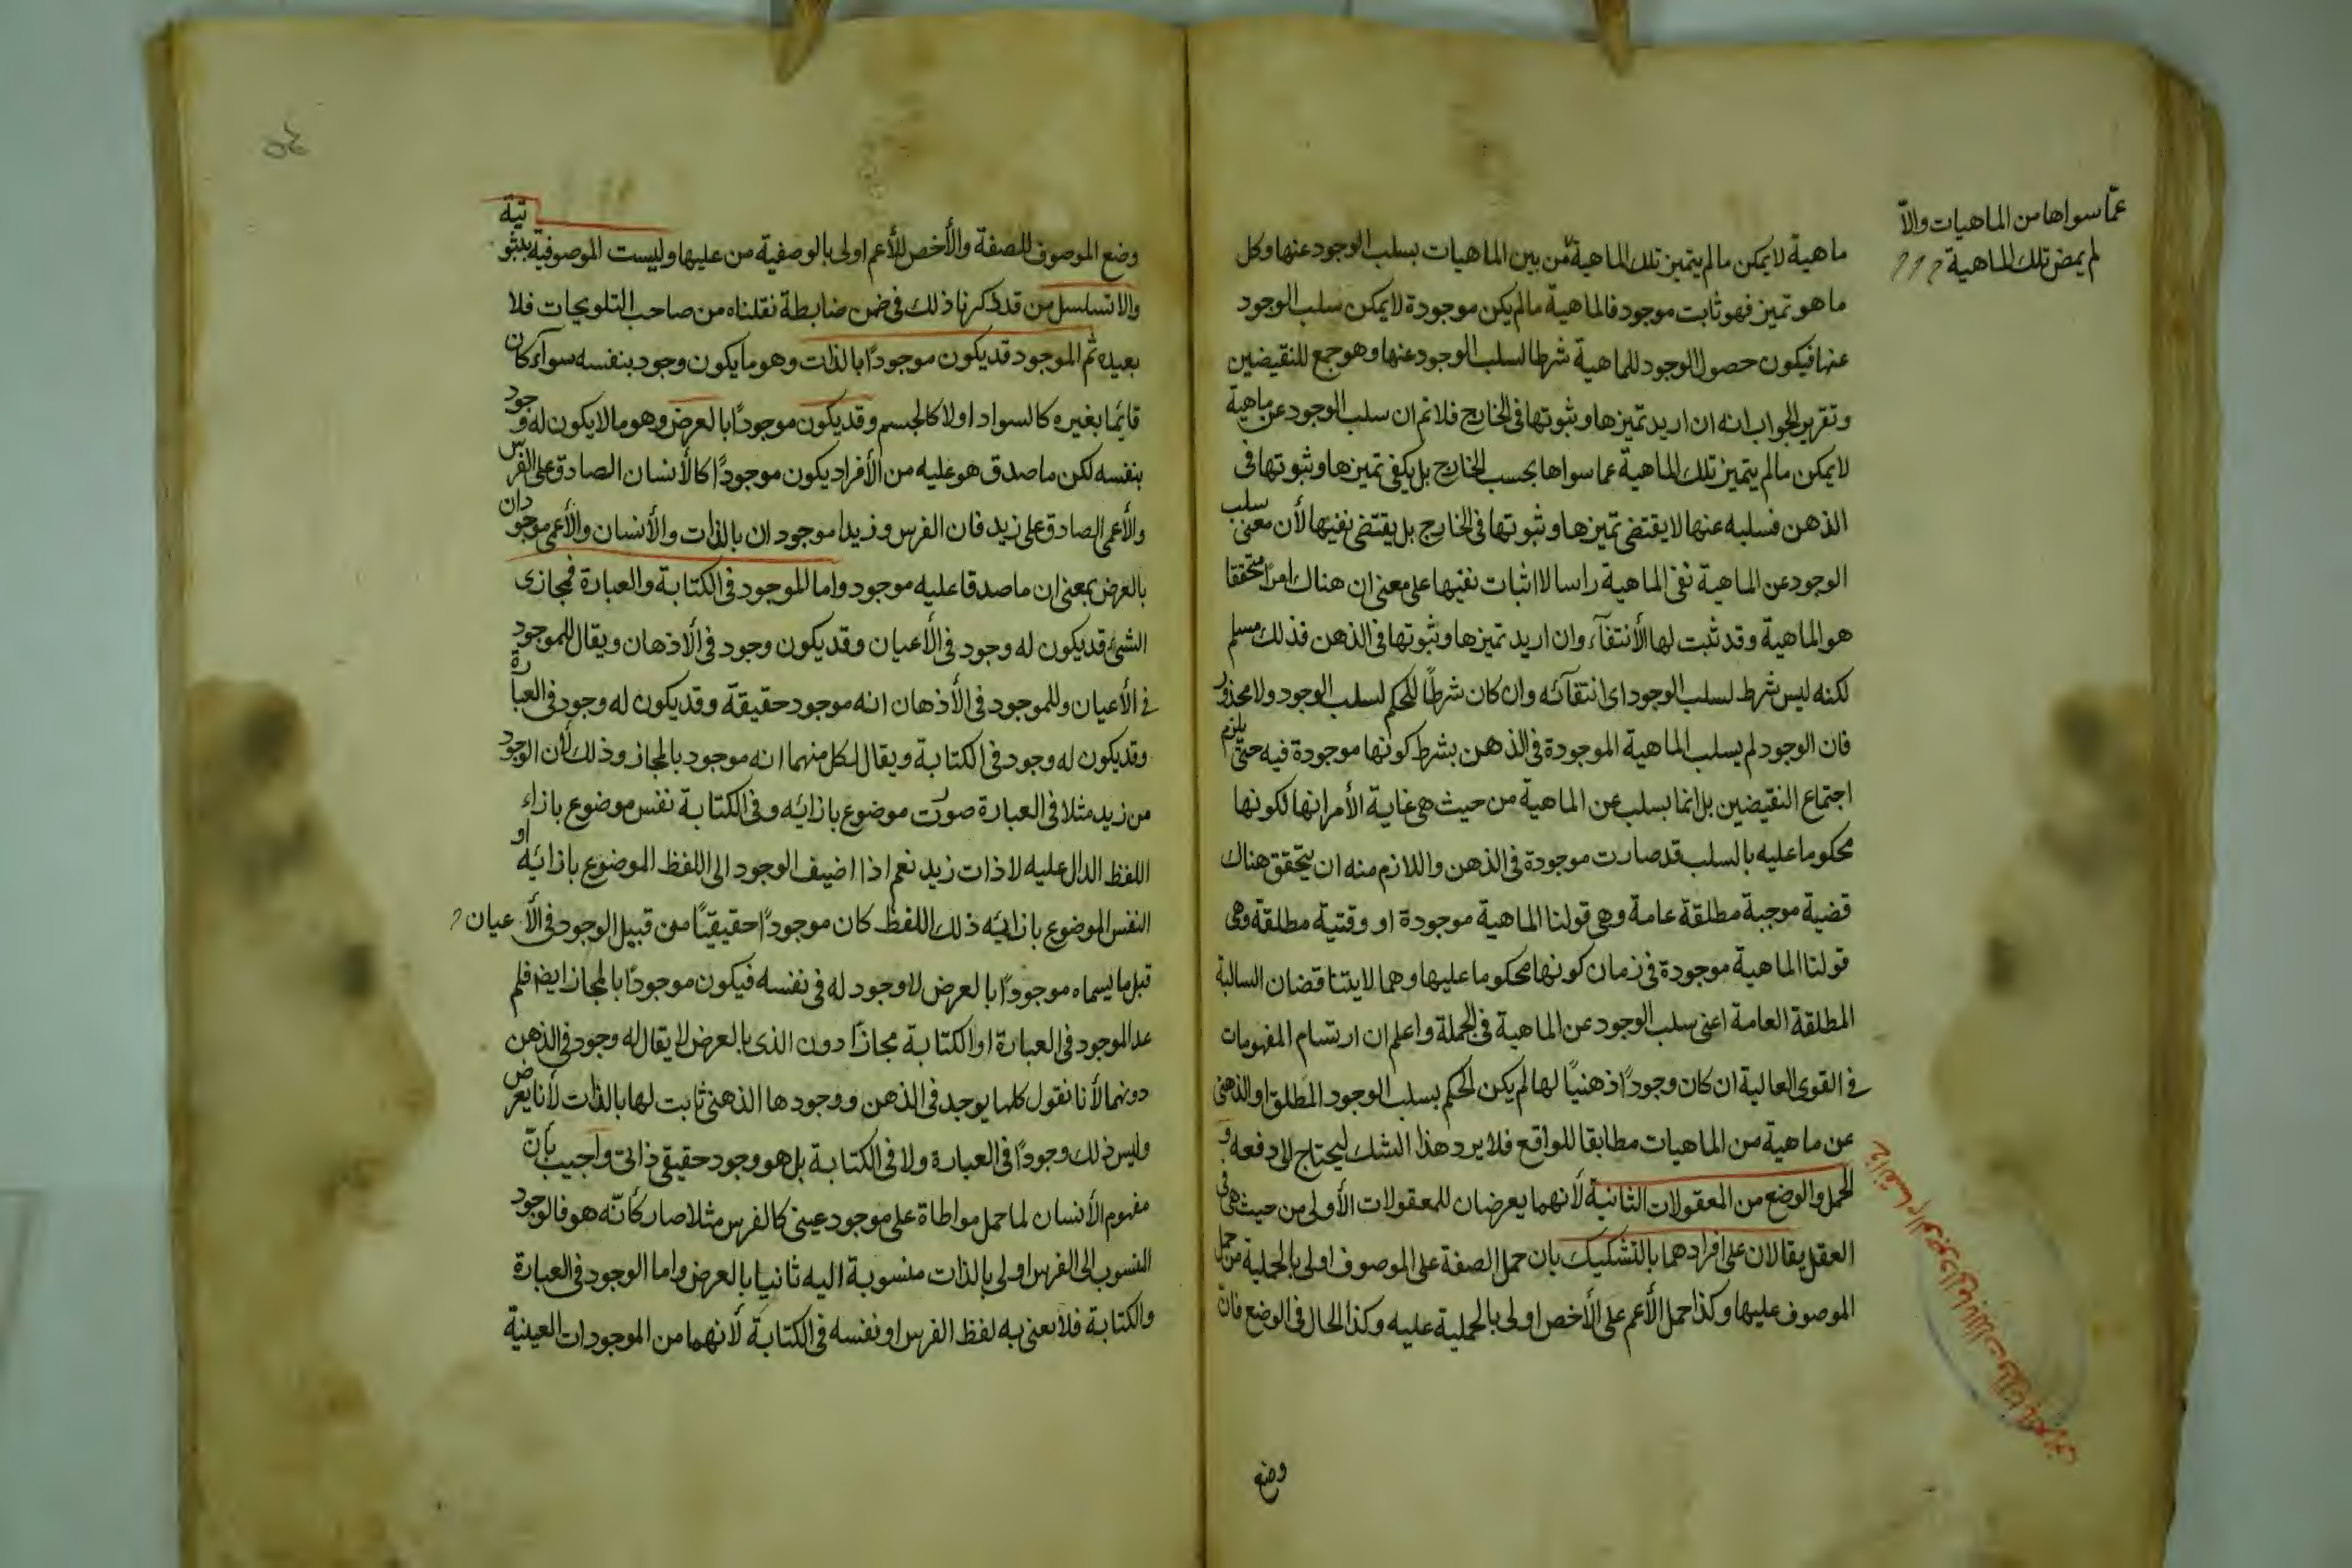 عمّا سواها من الماهيات والّا
لم يمض تلك الماهية
ماهية لا يمكن مالم يتميز تلك الماهية من بين الماهيات بسلب الوجود عنها وكل
ما هو تميز فهو ثابت موجود فالماهية مالم يكن موجودة لا يمكن سلب الوجود
عنها فيكون حصول الوجود للماهية شرطا لسلب الوجود عنها وهو جمع للنقيضين
وتقرير الجواب انه ان اريد تميزها وثبوتها فى الخارج فلا تم ان سلب الوجود عن ماهية
لا يمكن مالم يتميز تلك الماهية عما سواها بحسب الخارج بل يكفى تميزها وثبوتها فى
الذهن فسلبه عنها لا يقتضى تميزها وثبوتها فى الخارج بل يقتضى نفيها لأن معنى سلب
الوجود عن الماهية نفى الماهية راسا لا اثبات نفيها على معنى ان هناك امرًا متحققا
هو الماهية وقد ثبت لها الأنتفآء وان اريد تميزها وثبوتها فى الذهن فذلك مسلم
لكنه ليس شرط لسلب الوجود اى انتفآئه وان كان شرطًا للحكم لسلب الوجود ولا محذور
فان الوجود لم يسلب الماهية الموجودة فى الذهن بشرط كونها موجودة فيه حتى يلزم
اجتماع النقيضين بل انما يسلب عن الماهية من حيث هى غاية الأمر انها لكونها
محكوما عليه بالسلب قد صارت موجودة فى الذهن واللازم منه ان يتحقق هناك
قضية موجبة مطلقة عامة وهى قولنا الماهية موجودة او وقتية مطلقة وهى
قولنا الماهية موجودة فى زمان كونها محكوما عليها وهما لا يتناقضان السالبة
المطلقة العامة اعنى سلب الوجود عن الماهية فى الجملة واعلم ان ارتسام المفهومات
فى القوى العالية ان كان وجودًا ذهنيًا لها لم يكن الحكم بسلب الوجود المطلق او الذهنى
عن ماهية من الماهيات مطابقا للواقع فلا يرد هذا الشك ليحتاج لا دفعه و
الحمل والوضع من المعقولات الثانية لأنهما يعرضان للمعقولات الأولى من حيث هى فى
العقل يقالان على افرادهما بالتشكيك بان حمل الصفة على الموصوف اولى بالحملية من حمل
الموصوف عليها وكذا حمل الأعم على الأخص اولى بالحملية عليه وكذا الحال فى الوضع فان
وضع
وضع الموصوف للصفة والأخص للأعم اولى بالوصفية من عليها وليست الموصوفية بثبوتية
والا تسلسل من قد ذكرنا ذلك فى ضمن ضابطة نقلناه من صاحب التلويحات فلا
بعيده ثم الموجود قد يكون موجودًا بالذات وهو ما يكون وجود بنفسه سوآء كان
قايمًا بغيره كالسواد اولا كالجسم وقد يكون موجودًا بالعرض وهو ما لا يكون له وجود
بنفسه لكن ما صدق هو عليه من الأفراد يكون موجودًا كالأنسان الصادق على الفرس
والأعمى الصادق على زيد فان الفرس وزيدا موجودان بالذات والأنسان والأعمى موجودان
بالعرض بمعنى ان ما صدقا عليه موجود واما الموجود فى الكتابة والعبارة فمجازى
الشئ قد يكون له وجود فى الأعيان وقد يكون وجود فى الاذهان ويقال للموجود
فى الأعيان وللموجود فى الأذهان انه موجود حقيقة وقد يكون له وجود فى العبارة
وقد يكون له وجود فى الكتابة ويقال لكل منهما انه موجود بالمجاز وذلك لأن الوجود
من زيد مثلا فى العبارة صوت موضوع بازائه وفى الكتابة نفس موضوع بازاء
اللفظ الدال عليه لا ذات زيد نعم اذا اضيف الوجود الى اللفظ الموضوع بازائه او
النفس الموضوع بازائه ذلك اللفظ كان موجودًا حقيقيًا من قبيل الوجود فى الأعيان
قبل ما يسماه موجودًا بالعرض لا وجود له فى نفسه فيكون موجودًا بالمجاز ايضا فلم
عد الموجود فى العبارة او الكتابة مجازًا دون الذى بالعرض لا يقال له وجود فى الذهن
دونهما لأنا نقول كلها يوجد فى الذهن ووجودها الذهنى ثابت لها بالذات لأنا بعرض
وليس ذلك وجودًا فى العبارة ولا فى الكتابة بل هو وجود حقيقى ذاتى واجيب بان
مفهوم الأنسان لما حمل مواطاة على موجود عينى كالفرس مثلا صار كانّه هو فالوجود
المنسوب الى الفرس اولى بالذات منسوبة اليه ثانيا بالعرض واما الوجود فى العبارة
والكتابة فلا نعنى به لفظ الفرس او نفسه فى الكتابة لأنهما من الموجودات العينية